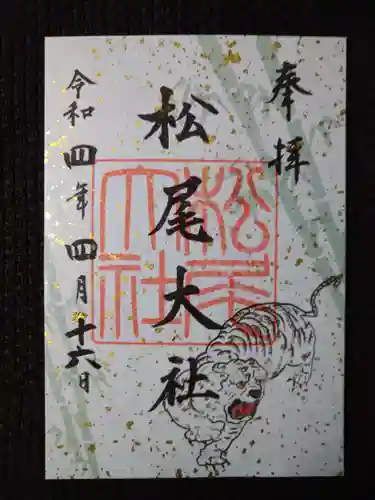 奉拝
松尾大社
松尾大社
令和四年四月十六日